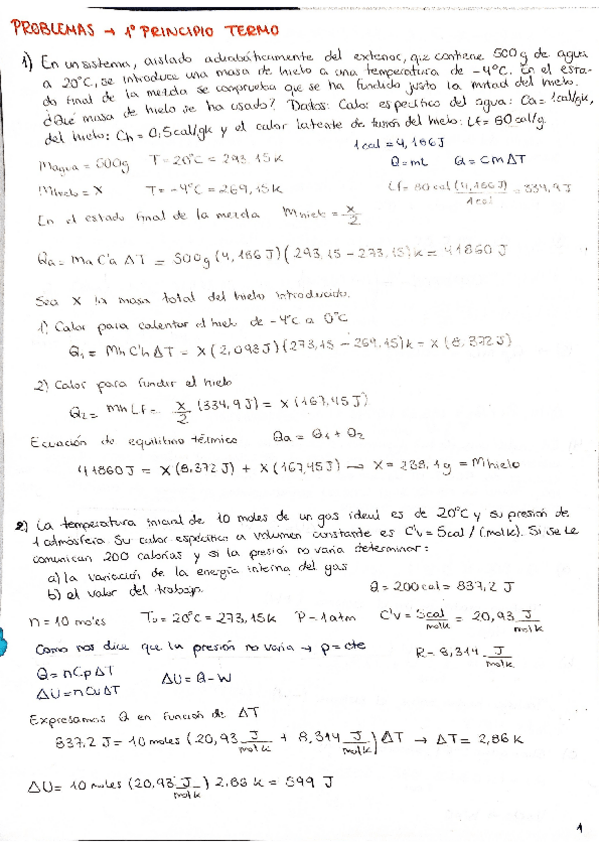 PROBLEMAS → 1º PRINCIPIO TERMO
1) En un sistema, aislado adiabáticamente del exterior, que contiene 500g de agua
a 20ºC, se introduce una masa de hielo a una temperatura de -4ºC. En el esta-
do final de la mezcla se comprueba que se ha fundido justo la mitad del hielo.
¿Qué masa de hielo se ha usado? Datos: Calor específico del agua: Ca = 1cal/gk,
del hielo: Ch = 0,5cal/gk y el calor latente de fusión del hielo: Lf = 80 cal/g
1cal = 4,186J
Magua = 500g T = 20ºC = 293.15k Q = mL Q = CmΔT
Mhielo = X T = -4ºC = 269,15k Lf = 80 cal (4,186J)/1cal = 334,9J
En el estado final de la mezcla Mhielo = x/2
Qa = Ma C'a ΔT = 500g (4,186 J)(293,15 - 273,15)k = 41860 J
Sea X la masa total del hielo introducido.
1) Calor para calentar el hielo de -4ºC a 0ºC
Q1 = Mh C'h ΔT = X (2,093J)(273,15 - 269,15)k = X (8,372J)
2) Calor para fundir el hielo
Q2 = Mh Lf = x/2 (334,9J) = X (167,45J)
Ecuación de equilibrio térmico Qa = Q1 + Q2
41860J = X (8,372J) + X (167,45J) → X = 238,1g = Mhielo
2) La temperatura inicial de 10 moles de un gas ideal es de 20ºC y su presión de
1 atmósfera. Su calor específico a volumen constante es C'v = 5cal / (molk). Si se le
comunican 200 calorías y si la presión no varía determinar:
a) la variación de la energía interna del gas
b) el valor del trabajo. Q = 200cal = 837,2 J
n = 10 moles To = 20ºC = 273,15k P = 1atm C'v = 5cal/molk = 20,93 J/molk
Como nos dice que la presión no varía → p = cte R = 8,314 J/molk
Q = nCpΔT
ΔU = nCvΔT ΔU = Q - W
Expresamos Q en función de ΔT
837,2 J = 10 moles (20,93 J/molk + 8,314 J/molk) ΔT → ΔT = 2,86 k
ΔU = 10 moles (20,93 J/molk) 2.86 k = 599 J
1